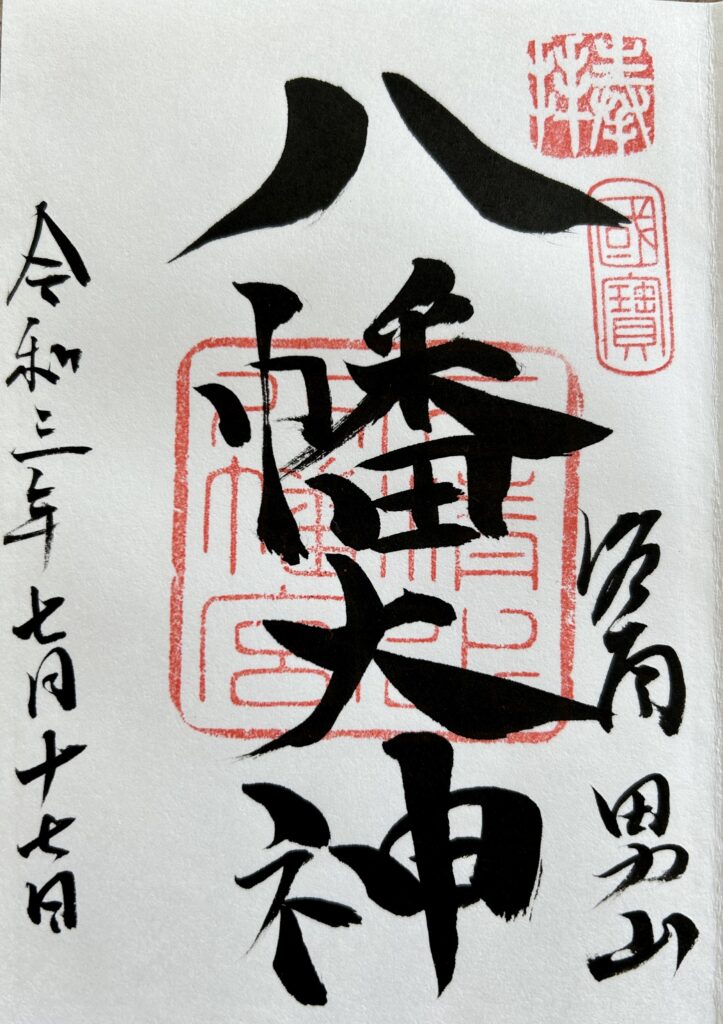 奉拝
國寶
洛南 男山
八幡大神
石清水
八幡宮
令和三年七月十七日